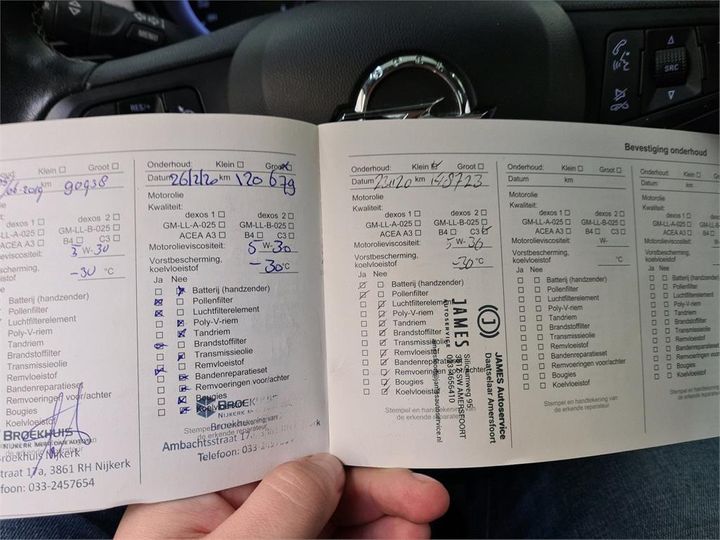 MENU
RES/+
SRC
Bevestiging onderhoud
Klein ☐ Groot ☐
2019 km 90938
Motorolie
Kwaliteit:
dexos 1 ☐ dexos 2 ☐
GM-LL-A-025 ☐ GM-LL-B-025 ☐
ACEA A3 ☐ B4 ☐ C3 ☐
5 W-30
-30 °C
Ja Nee
Batterij (handzender)
Pollenfilter
Luchtfilterelement
Poly-V-riem
Tandriem
Brandstoffilter
Transmissieolie
Remvloeistof
Bandenreparatieset
Remvoeringen voor/achter
Bougies
Koelvloeistof
BROEKHUIS
Broekhuis Nijkerk
straat 17a, 3861 RH Nijkerk
foon: 033-2457654
Onderhoud: Klein ☐ Groot ☒
Datum 26/2/20 km 120679
Motorolie
Kwaliteit:
dexos 1 ☐ dexos 2 ☐
GM-LL-A-025 ☐ GM-LL-B-025 ☐
ACEA A3 ☐ B4 ☐ C3 ☐
Motorolieviscositeit: 5 W-30
Vorstbescherming,
koelvloeistof -30 °C
Ja Nee
Batterij (handzender)
Pollenfilter
Luchtfilterelement
Poly-V-riem
Tandriem
Brandstoffilter
Transmissieolie
Remvloeistof
Bandenreparatieset
Remvoeringen voor/achter
Bougies
Koelvloeistof
BROEKHUIS
de erkende reparateur
Ambachtsstraat 17
Telefoon: 033-2457
Onderhoud: Klein ☒ Groot ☐
Datum 231120 km 148723
Motorolie
Kwaliteit:
dexos 1 ☐ dexos 2 ☐
GM-LL-A-025 ☐ GM-LL-B-025 ☐
ACEA A3 ☐ B4 ☐ C3 ☒
Motorolieviscositeit: 5 W-30
Vorstbescherming,
koelvloeistof -30 °C
Ja Nee
Batterij (handzender)
Pollenfilter
Luchtfilterelement
Poly-V-riem
Tandriem
Brandstoffilter
Transmissieolie
Remvloeistof
Bandenreparatieset
Remvoeringen voor/achter
Bougies
Koelvloeistof
Stempel en handtekening van
de erkende reparateur
JAMES
AUTOSERVICE
JAMES Autoservice
Daatselaar Amersfoort
3812 SW AMERSFOORT
Onderhoud: Klein ☐ Groot ☐
Datum km
Motorolie
Kwaliteit:
dexos 1 ☐ dexos 2 ☐
GM-LL-A-025 ☐ GM-LL-B-025 ☐
ACEA A3 ☐ B4 ☐ C3 ☐
Motorolieviscositeit: W-
Vorstbescherming,
koelvloeistof °C
Ja Nee
Batterij (handzender)
Pollenfilter
Luchtfilterelement
Poly-V-riem
Tandriem
Brandstoffilter
Transmissieolie
Remvloeistof
Bandenreparatieset
Remvoeringen voor/achter
Bougies
Koelvloeistof
Stempel en handtekening van
de erkende reparateur
Onderhoud: Klein
Datum km
Motorolie
Kwaliteit:
Ja Nee